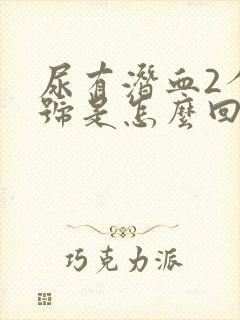 尿有潛血2个
號是怎麼回
巧克力派